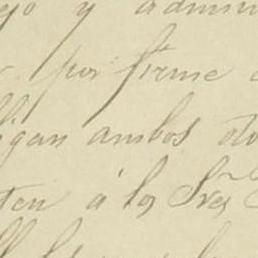 ejo y admin
por firme
ligan ambos oto
ten á los Sres